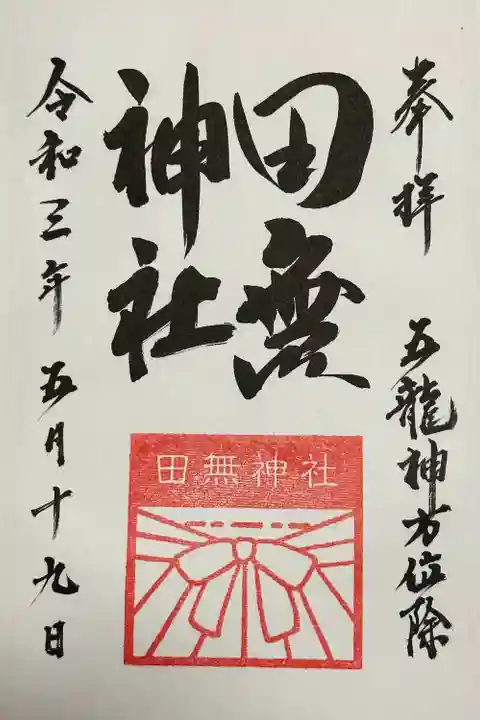 奉拝 五龍神方位除
田無
神社
田無神社
令和三年五月十九日